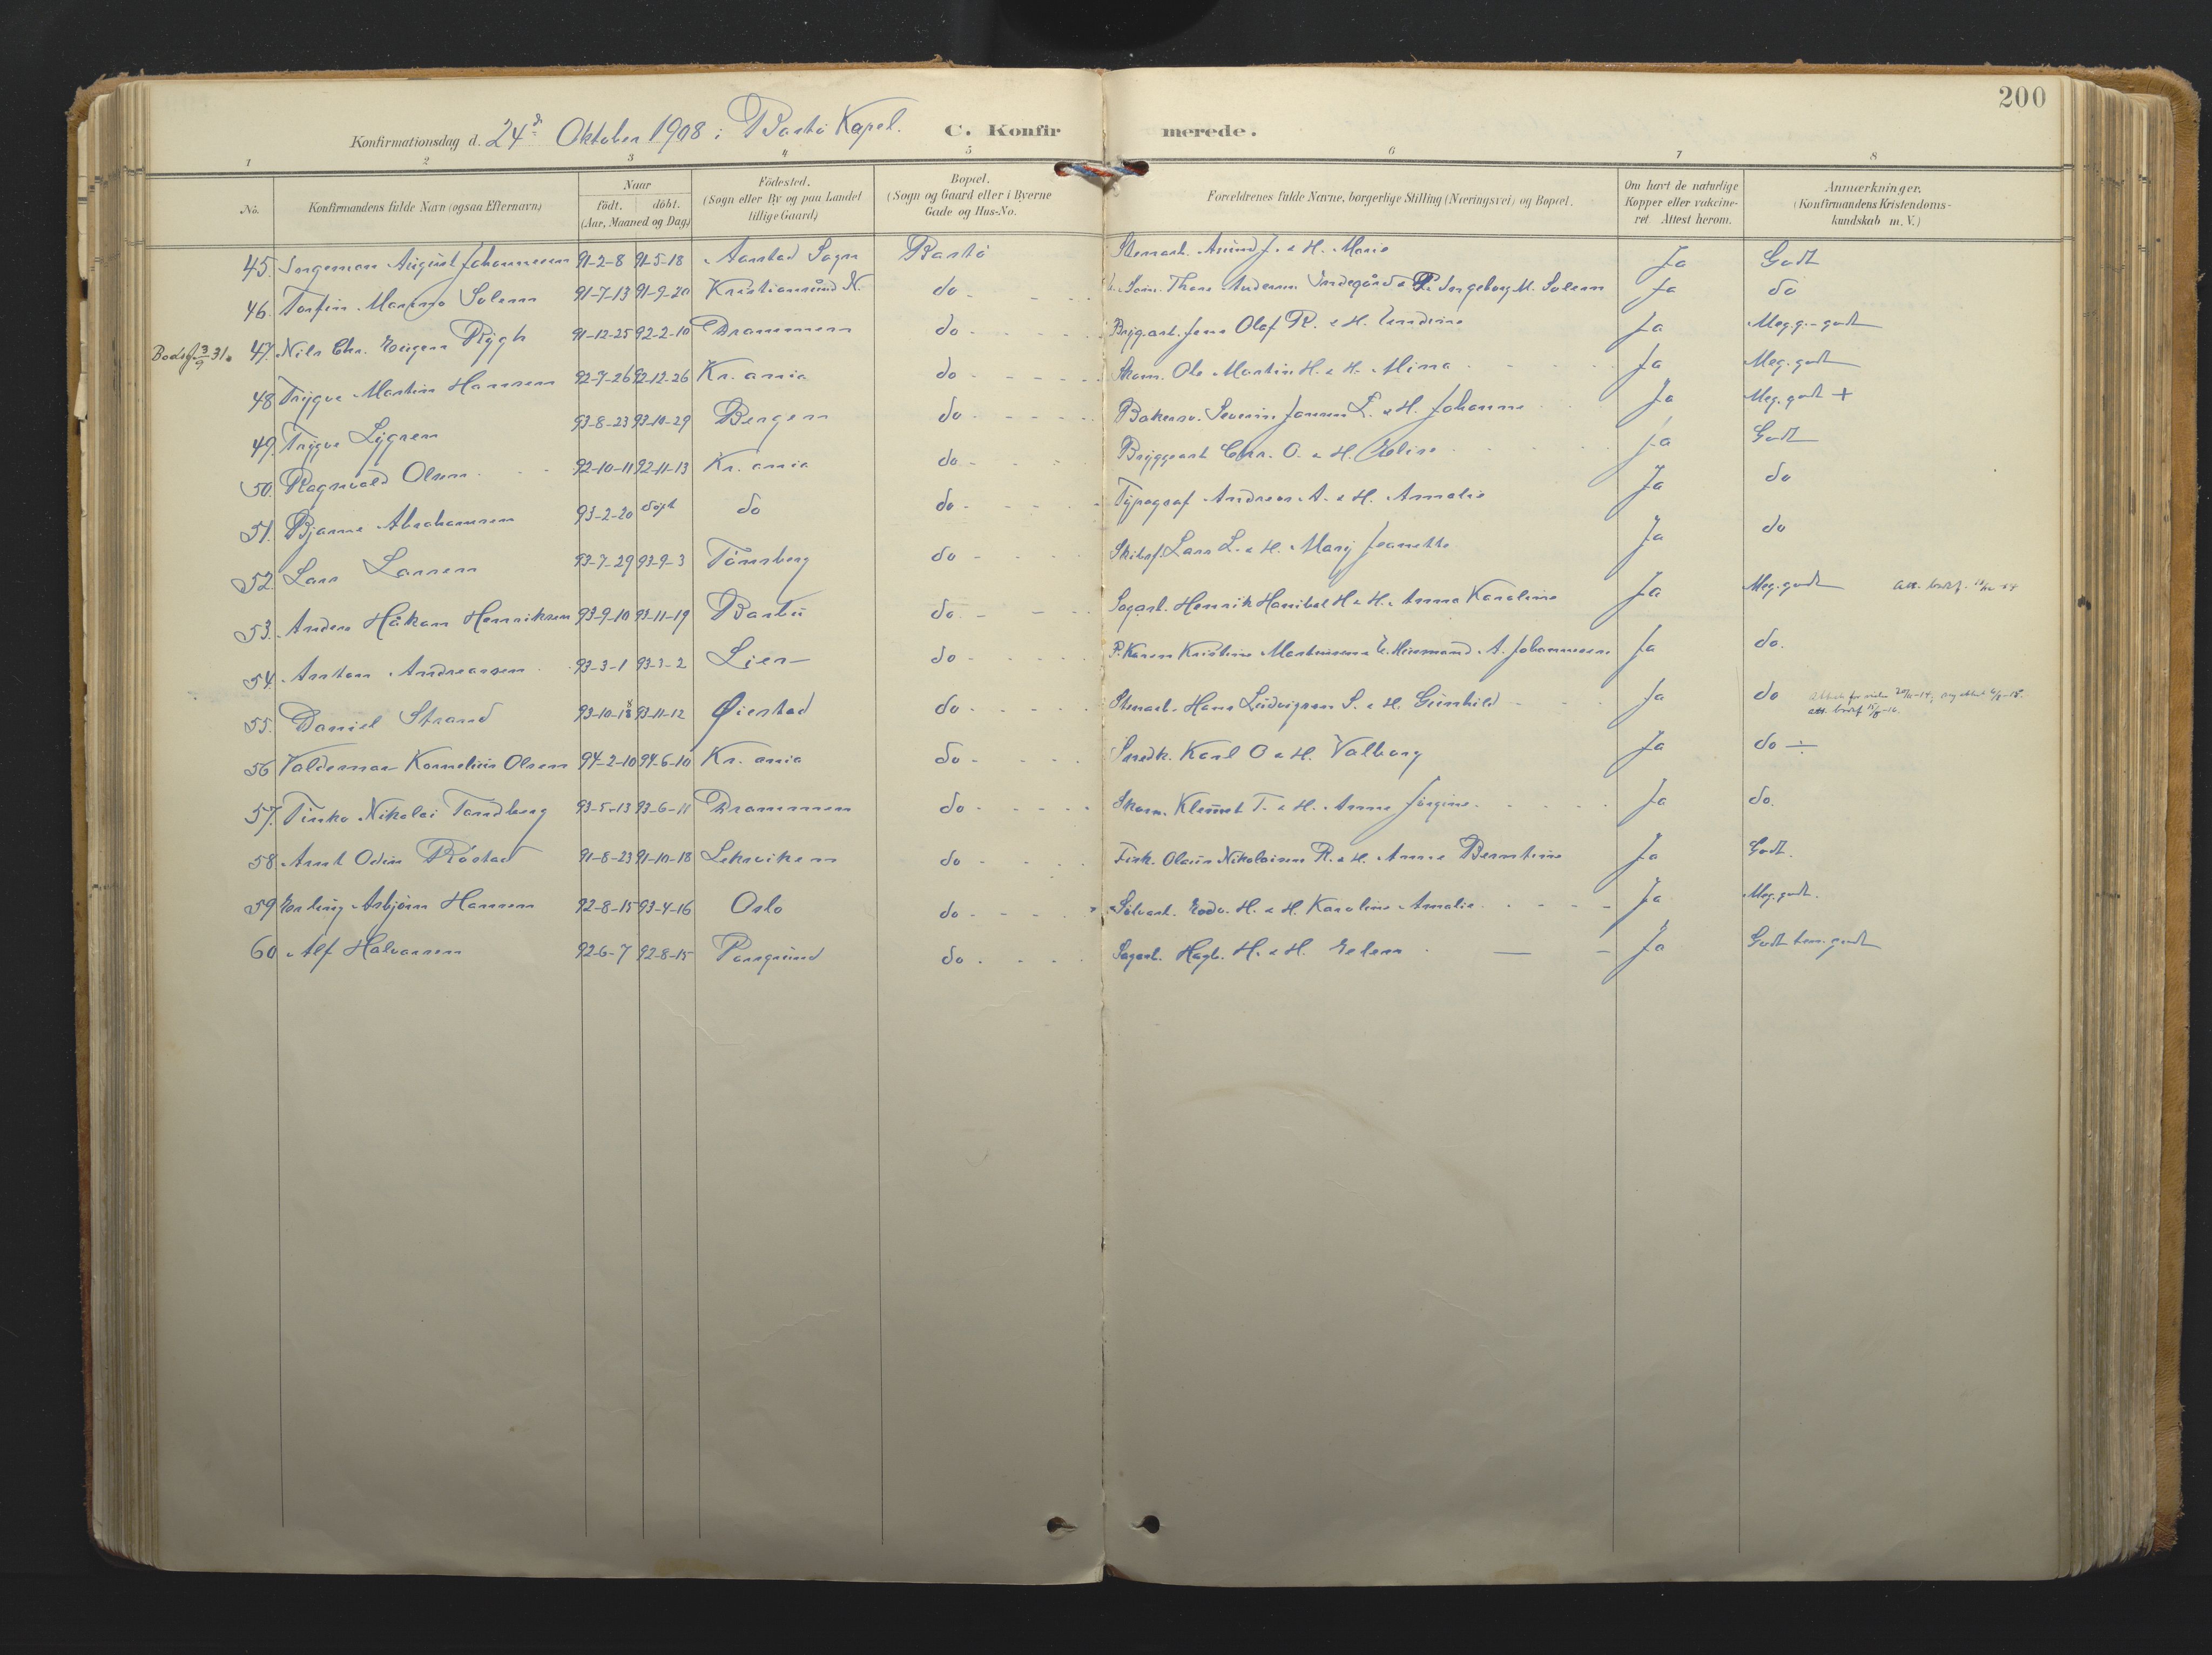 200
Konfirmationsdag d. 24de Oktober 1908 i Bastö Kapel. C. Konfirmerede.
1 2 3 4 5 6 7 8
No. Konfirmandens fulde Navn (ogsaa Efternavn) Naar födt. döbt. (Aar, Maaned og Dag) Födested. (Sogn eller By og paa Landet tillige Gaard) Bopæl. (Sogn og Gaard eller i Byerne Gade og Hus-No. Forældrenes fulde Navne, borgerlige Stilling (Næringsvei) og Bopæl. Om havt de naturlige Kopper eller vakcineret Attest herom. Anmærkninger. (Konfirmandens Kristendomskundskab m. V.)
45. Jorgeman August Johannesen 91-2-8 91-5-18 Aarstad Sogn Bastö Stenarb. Amund J. & H. Marie Ja Godt
46. Torfin Marino Solem 91-7-13 91-9-20 Kristiansund N. do Thore Andersen Indegård & P. Ingeborg M. Solem Ja do
47. Nils Chr. Eugen Rygh 91-12-25 92-2-10 Drammen do Brygarb. Jens Olaf R. & H. Ja Meg. g.-godt
48 Trygve Martin Hansen 92-7-26 92-12-26 Kr.ania do Skom. Ole Martin H. & H. Mina Ja Meg. godt
49. Trygve Lygren 93-8-23 93-10-29 Bergen do Bakersv. Severin Jansen L. & H. Johanne Ja Meg. godt +
50. Ragnvald Olsen 92-10-11 92-11-13 Kr.ania do Bryggearb Chr. O. & H. Elise Ja Godt
51. Bjarne Abrahamsen 93-2-20 döpt do do Typograf Andreas A. & H. Amalie Ja do
52. Lars Larsen 93-7-29 93-9-3 Tönsberg do Skibsf. Lars L. & H. Mary Jeanette Ja do
53. Anders Håkon Henriksen 93-9-10 93-11-19 Barbu do Sagarb. Henrik Hanibal H & H. Anna Karoline Ja Meg. godt
54. Anton Andreassen 93-3-1 Lier do P. Karen Kristine Martinsen & A. Johannesen Ja do.
55. Daniel Strand 93-10-18 93-11-12 Øiestad do Stenarb. Hans Ludvigsen S. & H. Gunhild Ja do
56 Valdemar Kornelius Olsen 94-2-10 94-6-10 Kr.ania do Snedk. Karl O & H. Valborg Ja do ÷
57. Tinko Nikolai Tandberg 93-5-13 93-6-11 Drammen do Skom. Klemet T. & H. Anne Jörgine Ja do.
58. Arnt Odin Röstad 91-8-23 91-10-18 Leksviken do Fisk. Olaus Nikolaisen R. & H. Anne Berntine Ja Godt.
59 Erling Asbjörn Hansen 92-8-15 93-4-16 Oslo do Sölvarb. Edv. H. & H. Karoline Amalie Ja Meg. godt.
60 Alf Halvorsen 92-6-7 92-8-15 Porsgrund do Sagarb. Hagb. H. & H. Ellen Ja Godt tem. godt